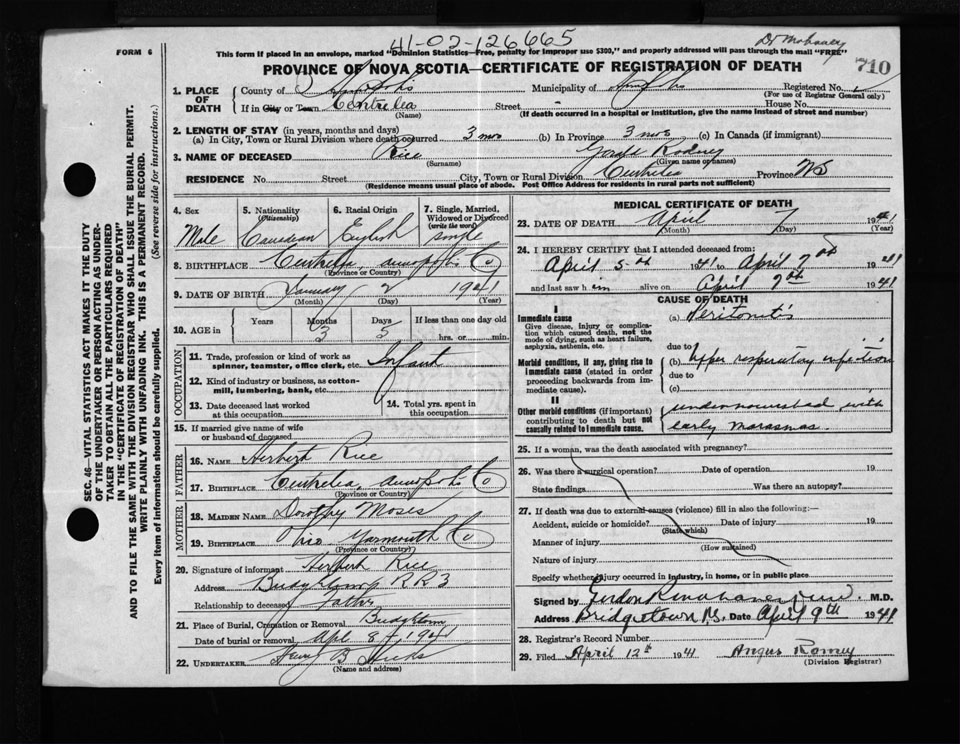 41-02-126665
Dr Mahaney
FORM 6
This form if placed in an envelope, marked "Dominion Statistics—Free, penalty for improper use $300," and properly addressed will pass through the mail "FREE"
710
PROVINCE OF NOVA SCOTIA—CERTIFICATE OF REGISTRATION OF DEATH
1. PLACE OF DEATH County of Annapolis Municipality of Annapolis Registered No.
(For use of Registrar General only)
If in City or Town Centrelea Street - House No.
(Name) (If death occurred in a hospital or institution, give the name instead of street and number)
2. LENGTH OF STAY (in years, months and days)
(a) In City, Town or Rural Division where death occurred 3 mos (b) In Province 3 mos (c) In Canada (if immigrant)
3. NAME OF DECEASED Rice Rodney
(Surname) (Given name or names)
RESIDENCE No. Street City, Town or Rural Division Centrelea Province NS
(Residence means usual place of abode. Post Office Address for residents in rural parts not sufficient)
4. Sex Male
5. Nationality (Citizenship) Canadian
6. Racial Origin English
7. Single, Married, Widowed or Divorced (write the word) Single
8. BIRTHPLACE Centrelea, Annapolis Co
(Province or Country)
9. DATE OF BIRTH January 2 1941
(Month) (Day) (Year)
10. AGE in Years Months 3 Days 5 If less than one day old hrs. or min.
OCCUPATION
11. Trade, profession or kind of work as spinner, teamster, office clerk, etc. Infant
12. Kind of industry or business, as cotton-mill, lumbering, bank, etc.
13. Date deceased last worked at this occupation
14. Total yrs. spent in this occupation
15. If married give name of wife or husband of deceased
FATHER
16. Name Herbert Rice
17. Birthplace Centrelea, Annapolis Co
(Province or Country)
MOTHER
18. Maiden Name Dorothy Moses
19. Birthplace Yarmouth Co
(Province or Country)
20. Signature of informant Herbert Rice
Address Bridgetown RR3
Relationship to deceased Father
21. Place of Burial, Cremation or Removal Bridgetown
Date of burial or removal Apl 8th 1941
22. UNDERTAKER B Hicks
(Name and address)
MEDICAL CERTIFICATE OF DEATH
23. DATE OF DEATH April 7 1941
(Month) (Day) (Year)
24. I HEREBY CERTIFY that I attended deceased from:
April 5th 1941 to April 7th 1941
and last saw him alive on April 7th 1941
CAUSE OF DEATH
I
Immediate cause (a) Peritonitis
Give disease, injury or complication which caused death, not the mode of dying, such as heart failure, asphyxia, asthenia, etc.
due to
Morbid conditions, if any, giving rise to immediate cause (stated in order proceeding backwards from immediate cause).
(b) Upper respiratory infection
due to
(c)
II
Other morbid conditions (if important) contributing to death but not causally related to immediate cause.
undernourished, with
early marasmas.
25. If a woman, was the death associated with pregnancy?
26. Was there a surgical operation? Date of operation 19
State findings Was there an autopsy?
27. If death was due to external causes (violence) fill in also the following:—
Accident, suicide or homicide? Date of injury 19
(State which)
Manner of injury
(How sustained)
Nature of injury
Specify whether injury occurred in industry, in home, or in public place
Signed by Gordon M.D.
Address Bridgetown N.S. Date April 9th 1941
28. Registrar's Record Number
29. Filed April 12th 1941 Angus Romey
(Division Registrar)
SEC. 46—VITAL STATISTICS ACT MAKES IT THE DUTY OF THE UNDERTAKER OR PERSON ACTING AS UNDERTAKER TO OBTAIN ALL THE PARTICULARS REQUIRED IN THE "CERTIFICATE OF REGISTRATION OF DEATH"
AND TO FILE THE SAME WITH THE DIVISION REGISTRAR WHO SHALL ISSUE THE BURIAL PERMIT.
WRITE PLAINLY WITH UNFADING INK. THIS IS A PERMANENT RECORD.
Every item of information should be carefully supplied. (See reverse side for instructions.)